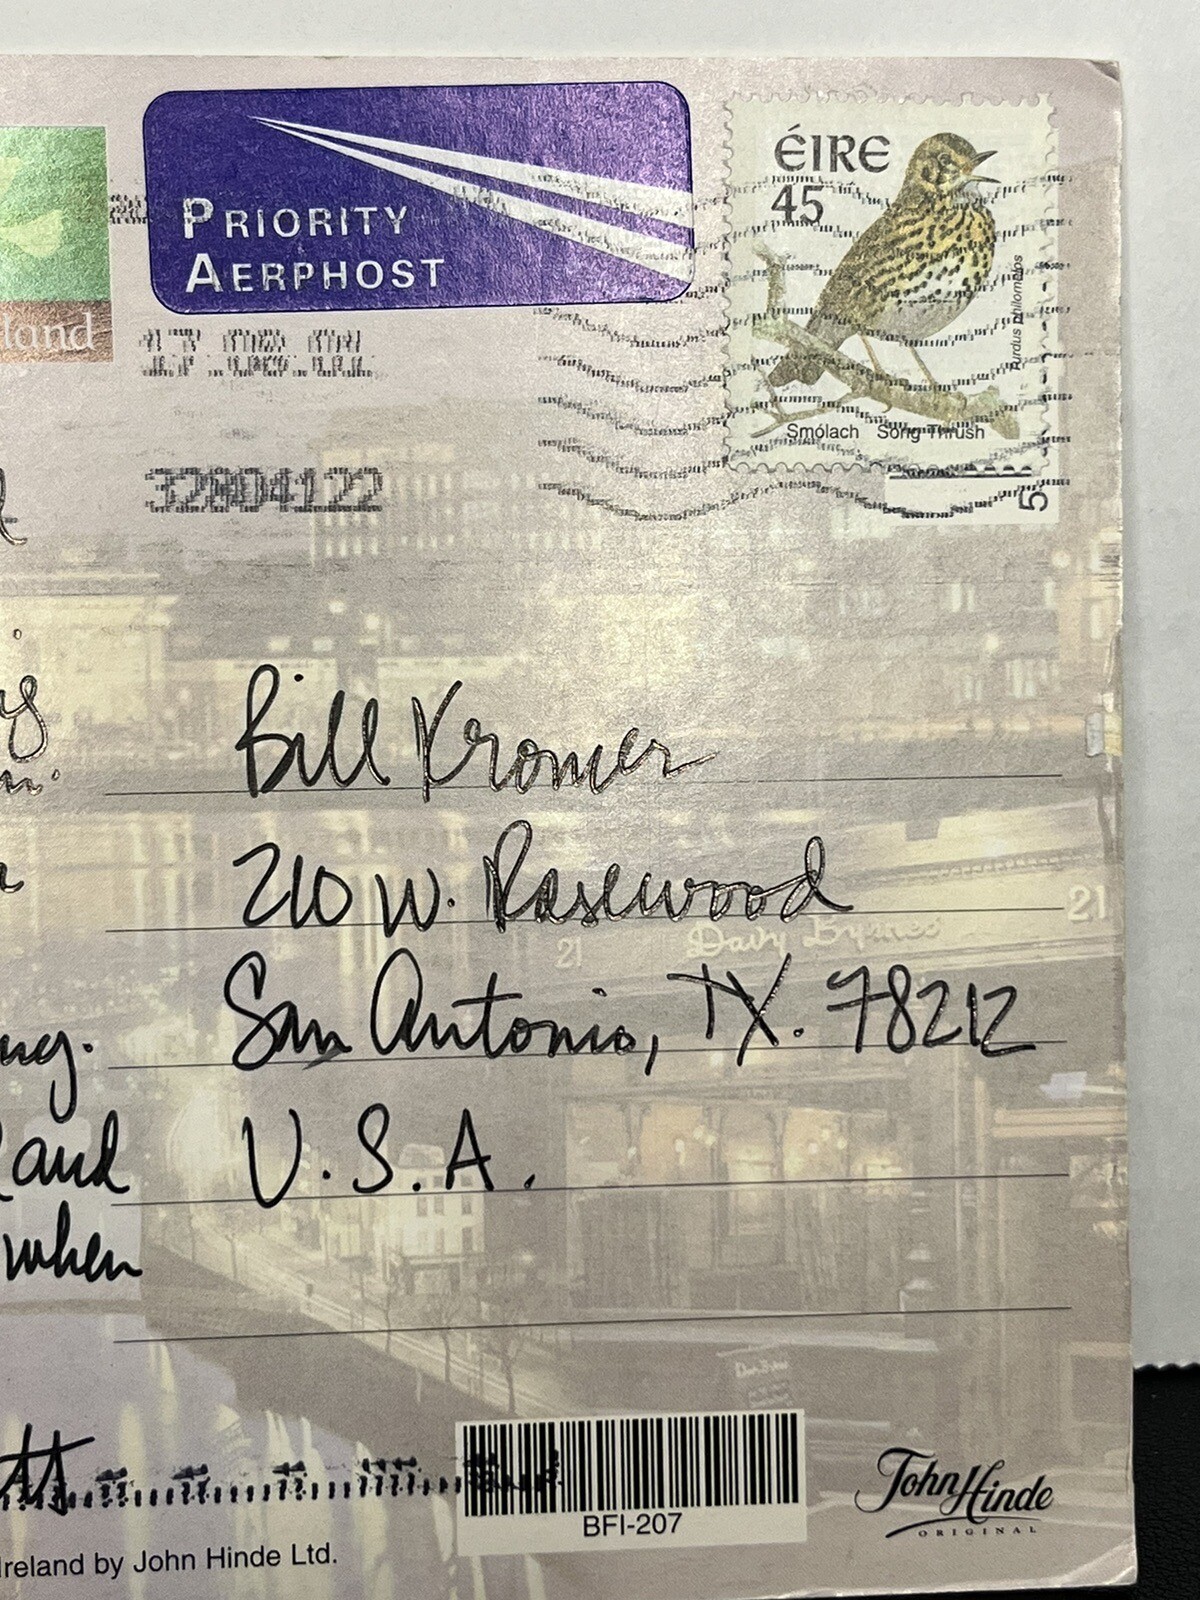 PRIORITY
AERPHOST
ÉIRE
45
Turdus philomelos
Smólach Song Thrush
5
land
Bill Kromer
210 W. Rosewood
San Antonio, TX. 78212
U.S.A.
and
when
21
Davy Byrnes
21
BFI-207
John Hinde
ORIGINAL
Ireland by John Hinde Ltd.